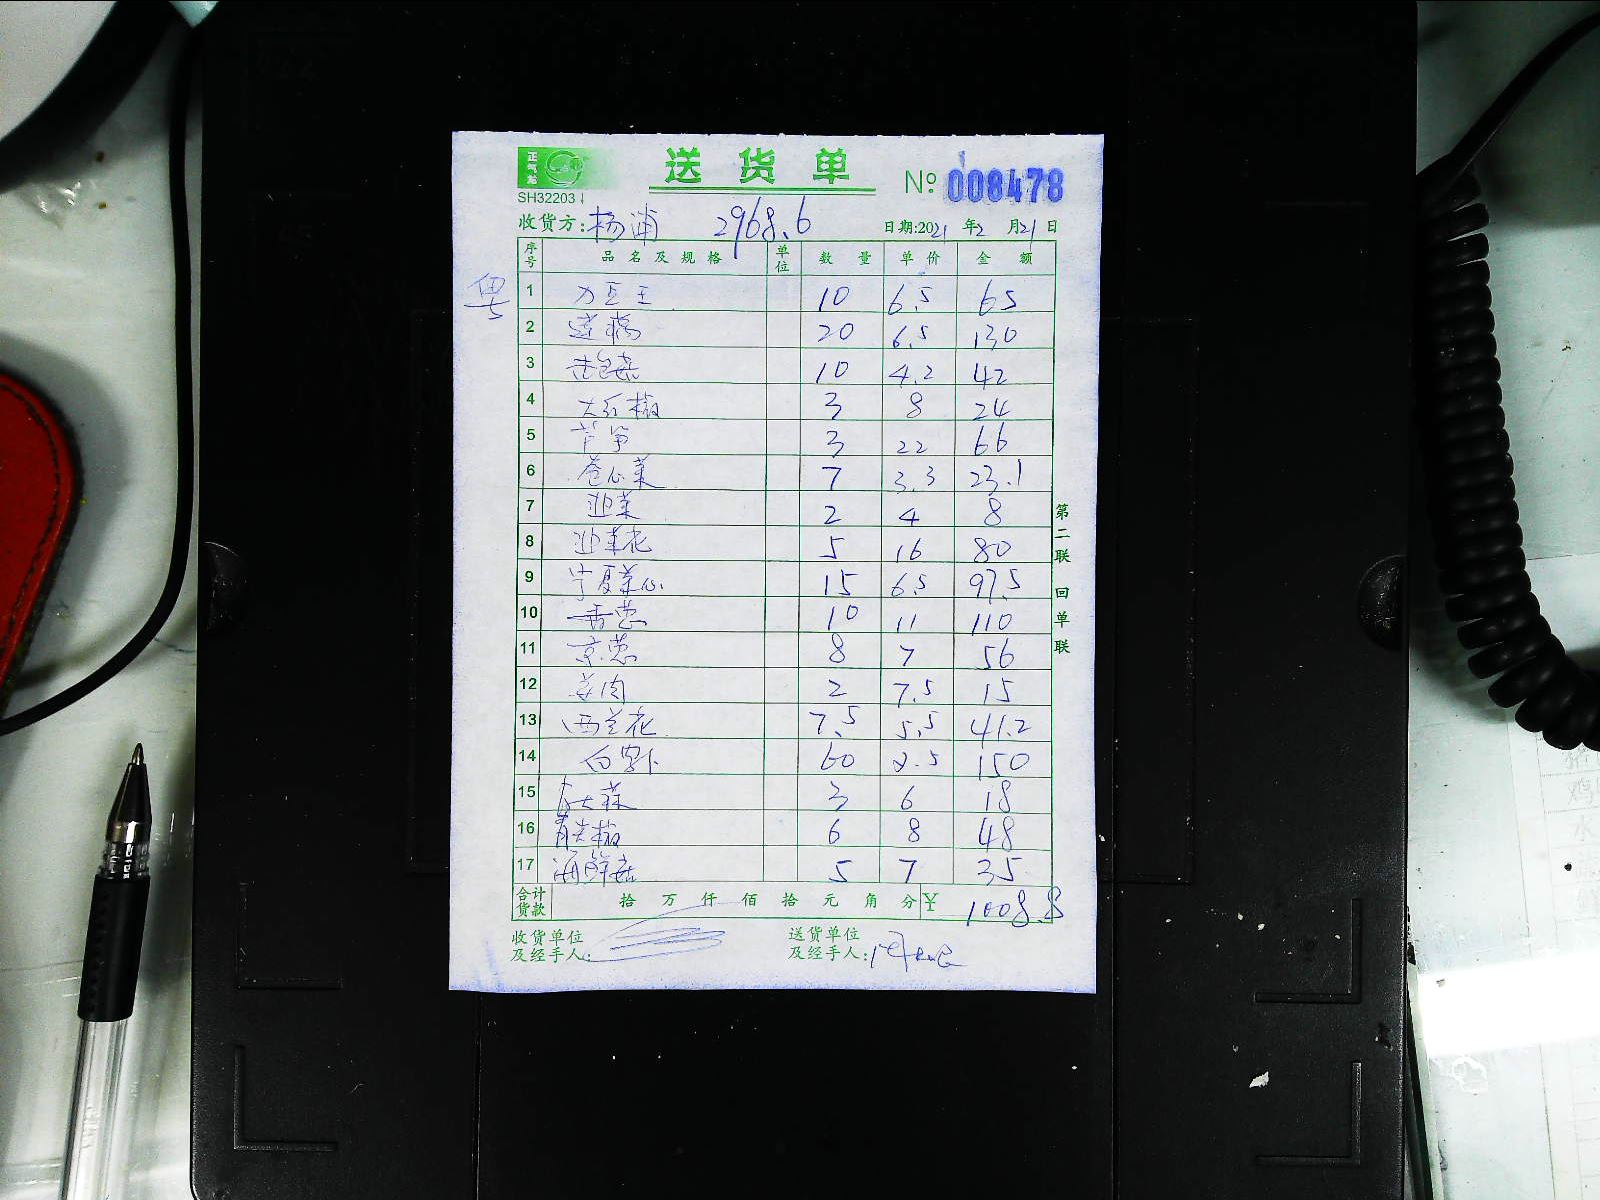 正气龙
SH32203
送货单
№ 008478
收货方: 杨浦 2968.6 日期:2021年2月21日
序号 品名及规格 单位 数量 单价 金额
粤
1 刀豆王 10 6.5 65
2 20 6.5 130
3 10 4.2 42
4 大红椒 3 8 24
5 芦笋 3 22 66
6 卷心菜 7 3.3 23.1
7 韭菜 2 4 8
8 韭菜花 5 16 80
9 宁夏菜心 15 6.5 97.5
10 香葱 10 11 110
11 京葱 8 7 56
12 2 7.5 15
13 西兰花 7.5 5.5 41.2
14 白萝卜 60 2.5 150
15 3 6 18
16 青尖椒 6 8 48
17 海鲜菇 5 7 35
合计货款 拾 万 仟 佰 拾 元 角 分 ¥ 1008.8
收货单位及经手人:
送货单位及经手人:
第二联 回单联